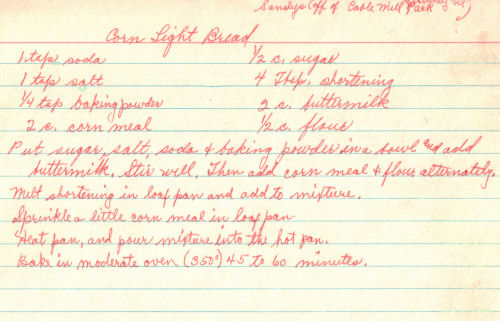 Sandys (off of Cable Mill Park
Corn Light Bread
1 tsp soda
1/2 c. sugar
1 tsp salt
4 Tbsp. shortening
1/4 tsp baking powder
2 c. buttermilk
2 c. corn meal
1/2 c. flour
Put sugar, salt, soda & baking powder in a bowl and add
buttermilk. Stir well. Then add corn meal & flour alternately.
Melt shortening in loaf pan and add to mixture.
Sprinkle a little corn meal in loaf pan
Heat pan, and pour mixture into the hot pan.
Bake in moderate oven (350°) 45 to 60 minutes.